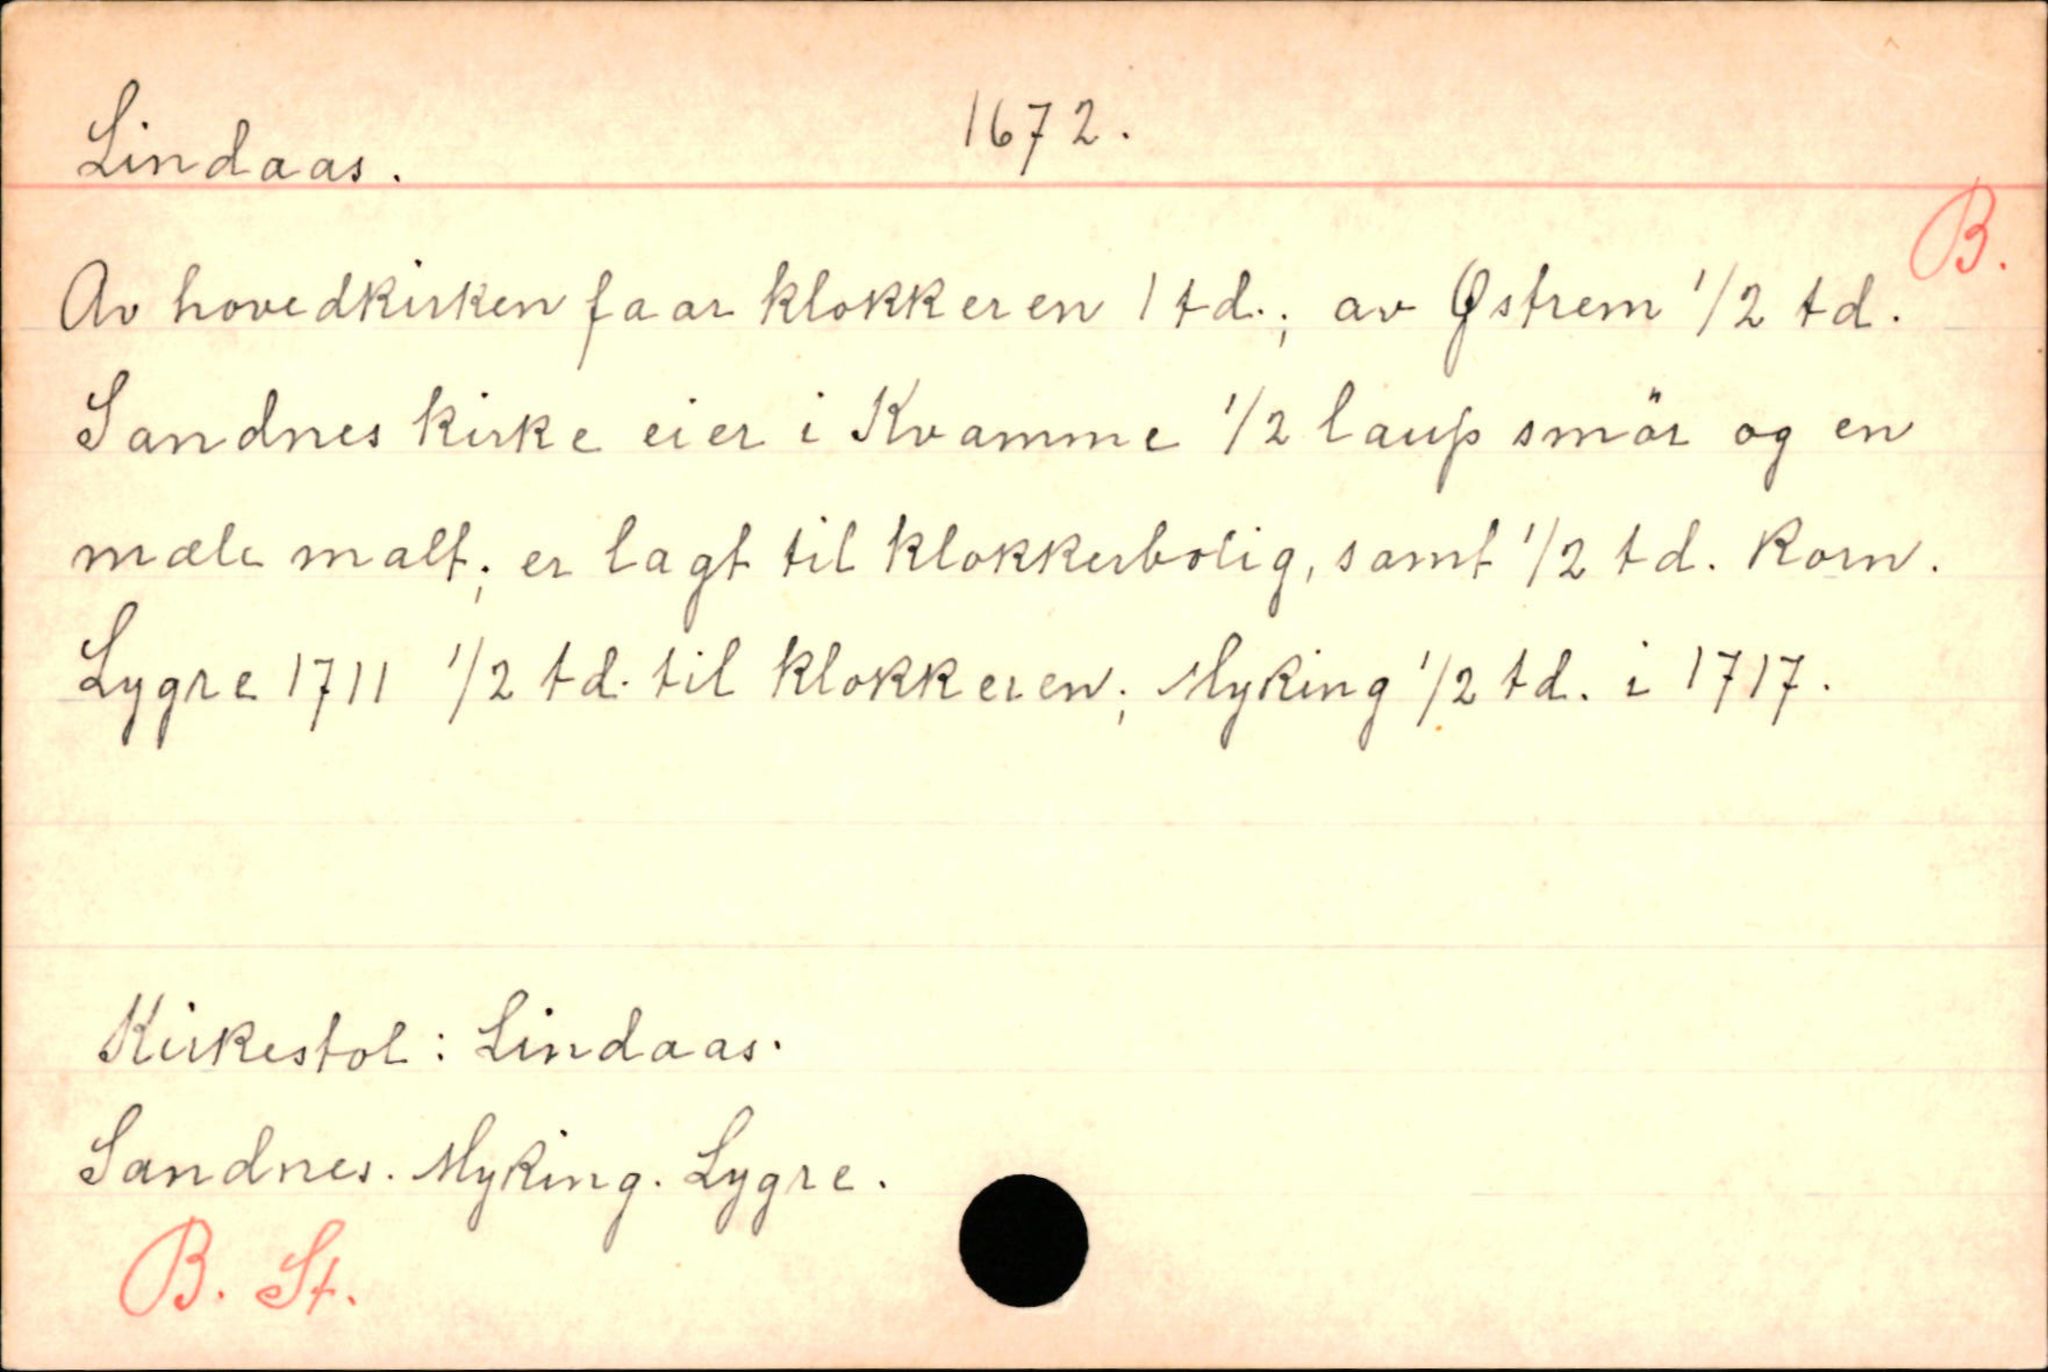 Lindaas. 1672.
B.
Av hovedkirken faar klokkeren 1 td.; av Østrem 1/2 td.
Sandnes kirke eier i Kvamme 1/2 laup smör og en
mæle malt; er lagt til klokkerbolig, samt 1/2 td. korn.
Lygre 1711 1/2 td. til klokkeren; Myking 1/2 td. i 1717.
Kirkestol: Lindaas.
Sandnes. Myking. Lygre.
B. St.